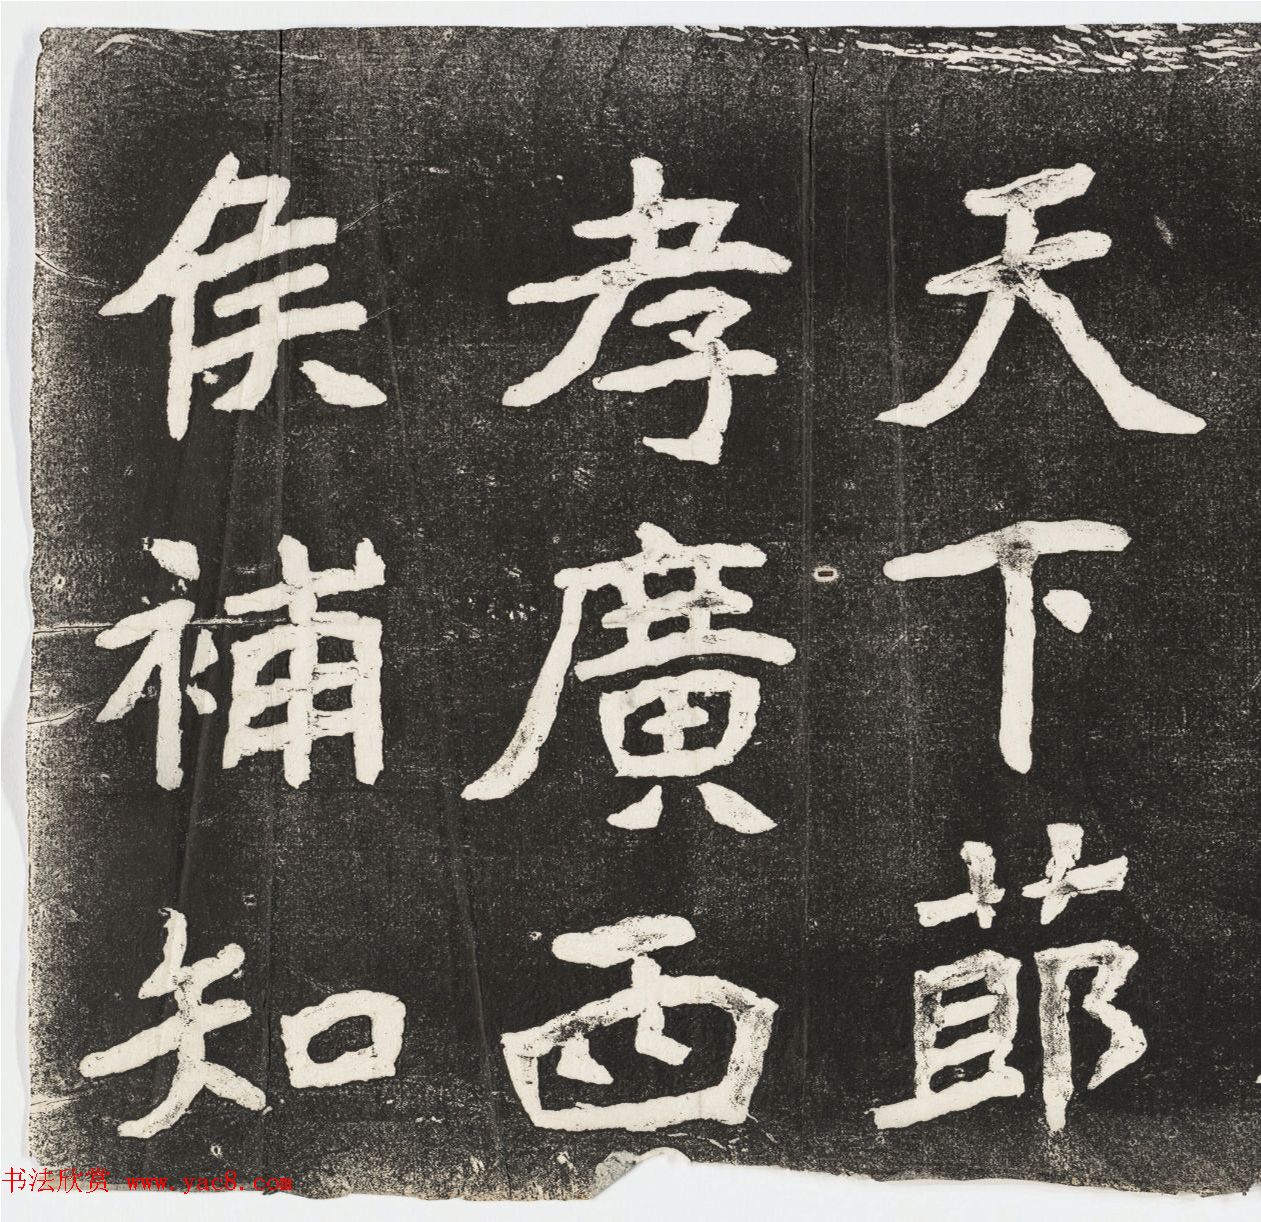 天下節
孝廣西
矦補知
书法欣赏 www.yac8.com